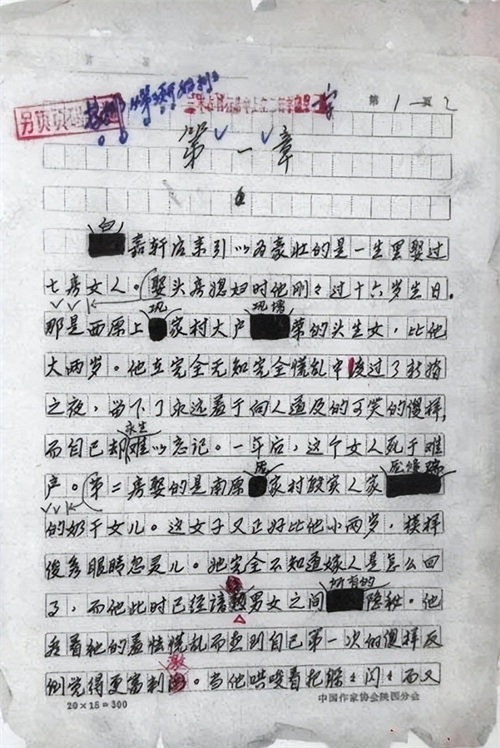 第 1 页
第一章
白嘉轩后来引以为豪壮的是一生里娶过
七房女人。娶头房媳妇时他刚々过十六岁生日。
那是西原上巩家村大户巩增荣的头生女，比他
大两岁。他在完全无知完全慌乱中度过了新婚
之夜，留下了永远羞于向人道及的可笑的傻样，
而自己却永生难以忘记。一年后，这个女人死于难
产。第二房娶的是南原庞家村殷实人家庞修瑞
的奶干女儿。这女子又正好比他小两岁，模样
俊秀眼睛忽灵儿。她完全不知道嫁人是怎么回
事，而他此时已经谙熟男女之间所有的隐秘。他
看着她的羞怯慌乱而想到自己第一次的傻样反
倒觉得更富刺激。当他哄唆着把躲々闪々而又
20×15=300 中国作家协会陕西分会